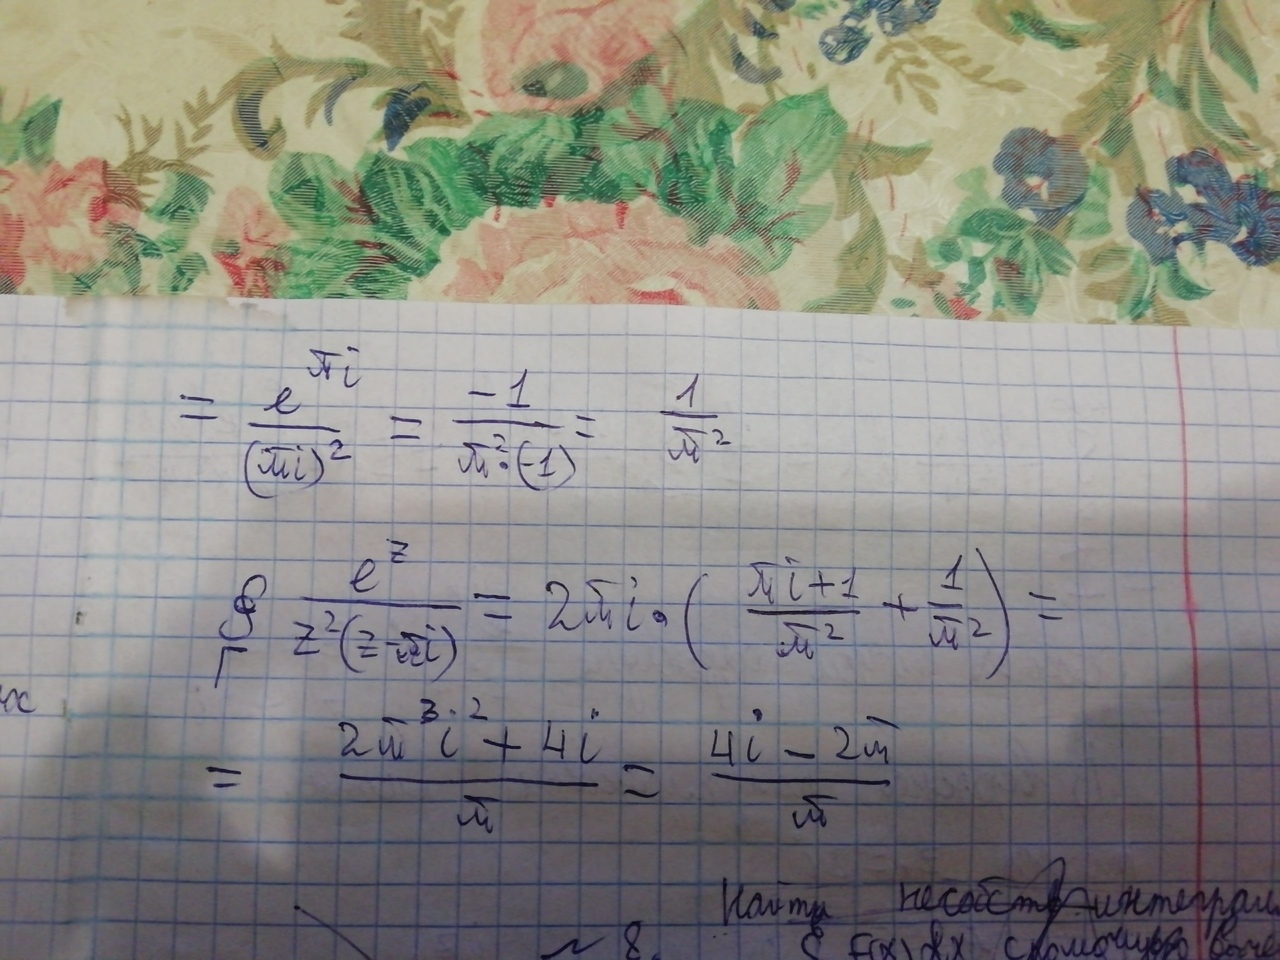 = e^{πi} / (πi)^2 = -1 / π^2·(-1) = 1 / π^2
∮_Γ e^z / z^2(z-πi) = 2πi·( πi+1 / π^2 + 1 / π^2 ) =
= 2π^3i^2 + 4i / π = 4i - 2π / π
Найти интеграл
№ 8. f(x)dx с помощью